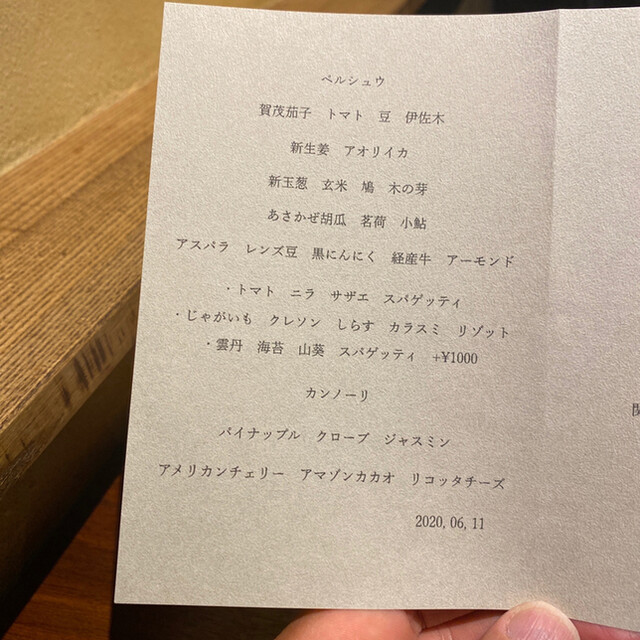 ペルシュウ
賀茂茄子　トマト　豆　伊佐木
新生姜　アオリイカ
新玉葱　玄米　鳩　木の芽
あさかぜ胡瓜　茗荷　小鮎
アスパラ　レンズ豆　黒にんにく　経産牛　アーモンド
・トマト　ニラ　サザエ　スパゲッティ
・じゃがいも　クレソン　しらす　カラスミ　リゾット
・雲丹　海苔　山葵　スパゲッティ　+¥1000
カンノーリ
パイナップル　クローブ　ジャスミン
アメリカンチェリー　アマゾンカカオ　リコッタチーズ
2020,06,11